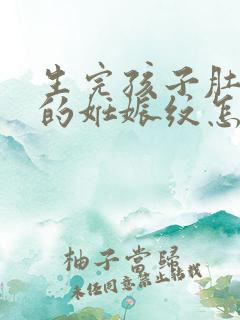 生完孩子肚
的妊娠纹怎
柚子當歸
未经同意禁止转载